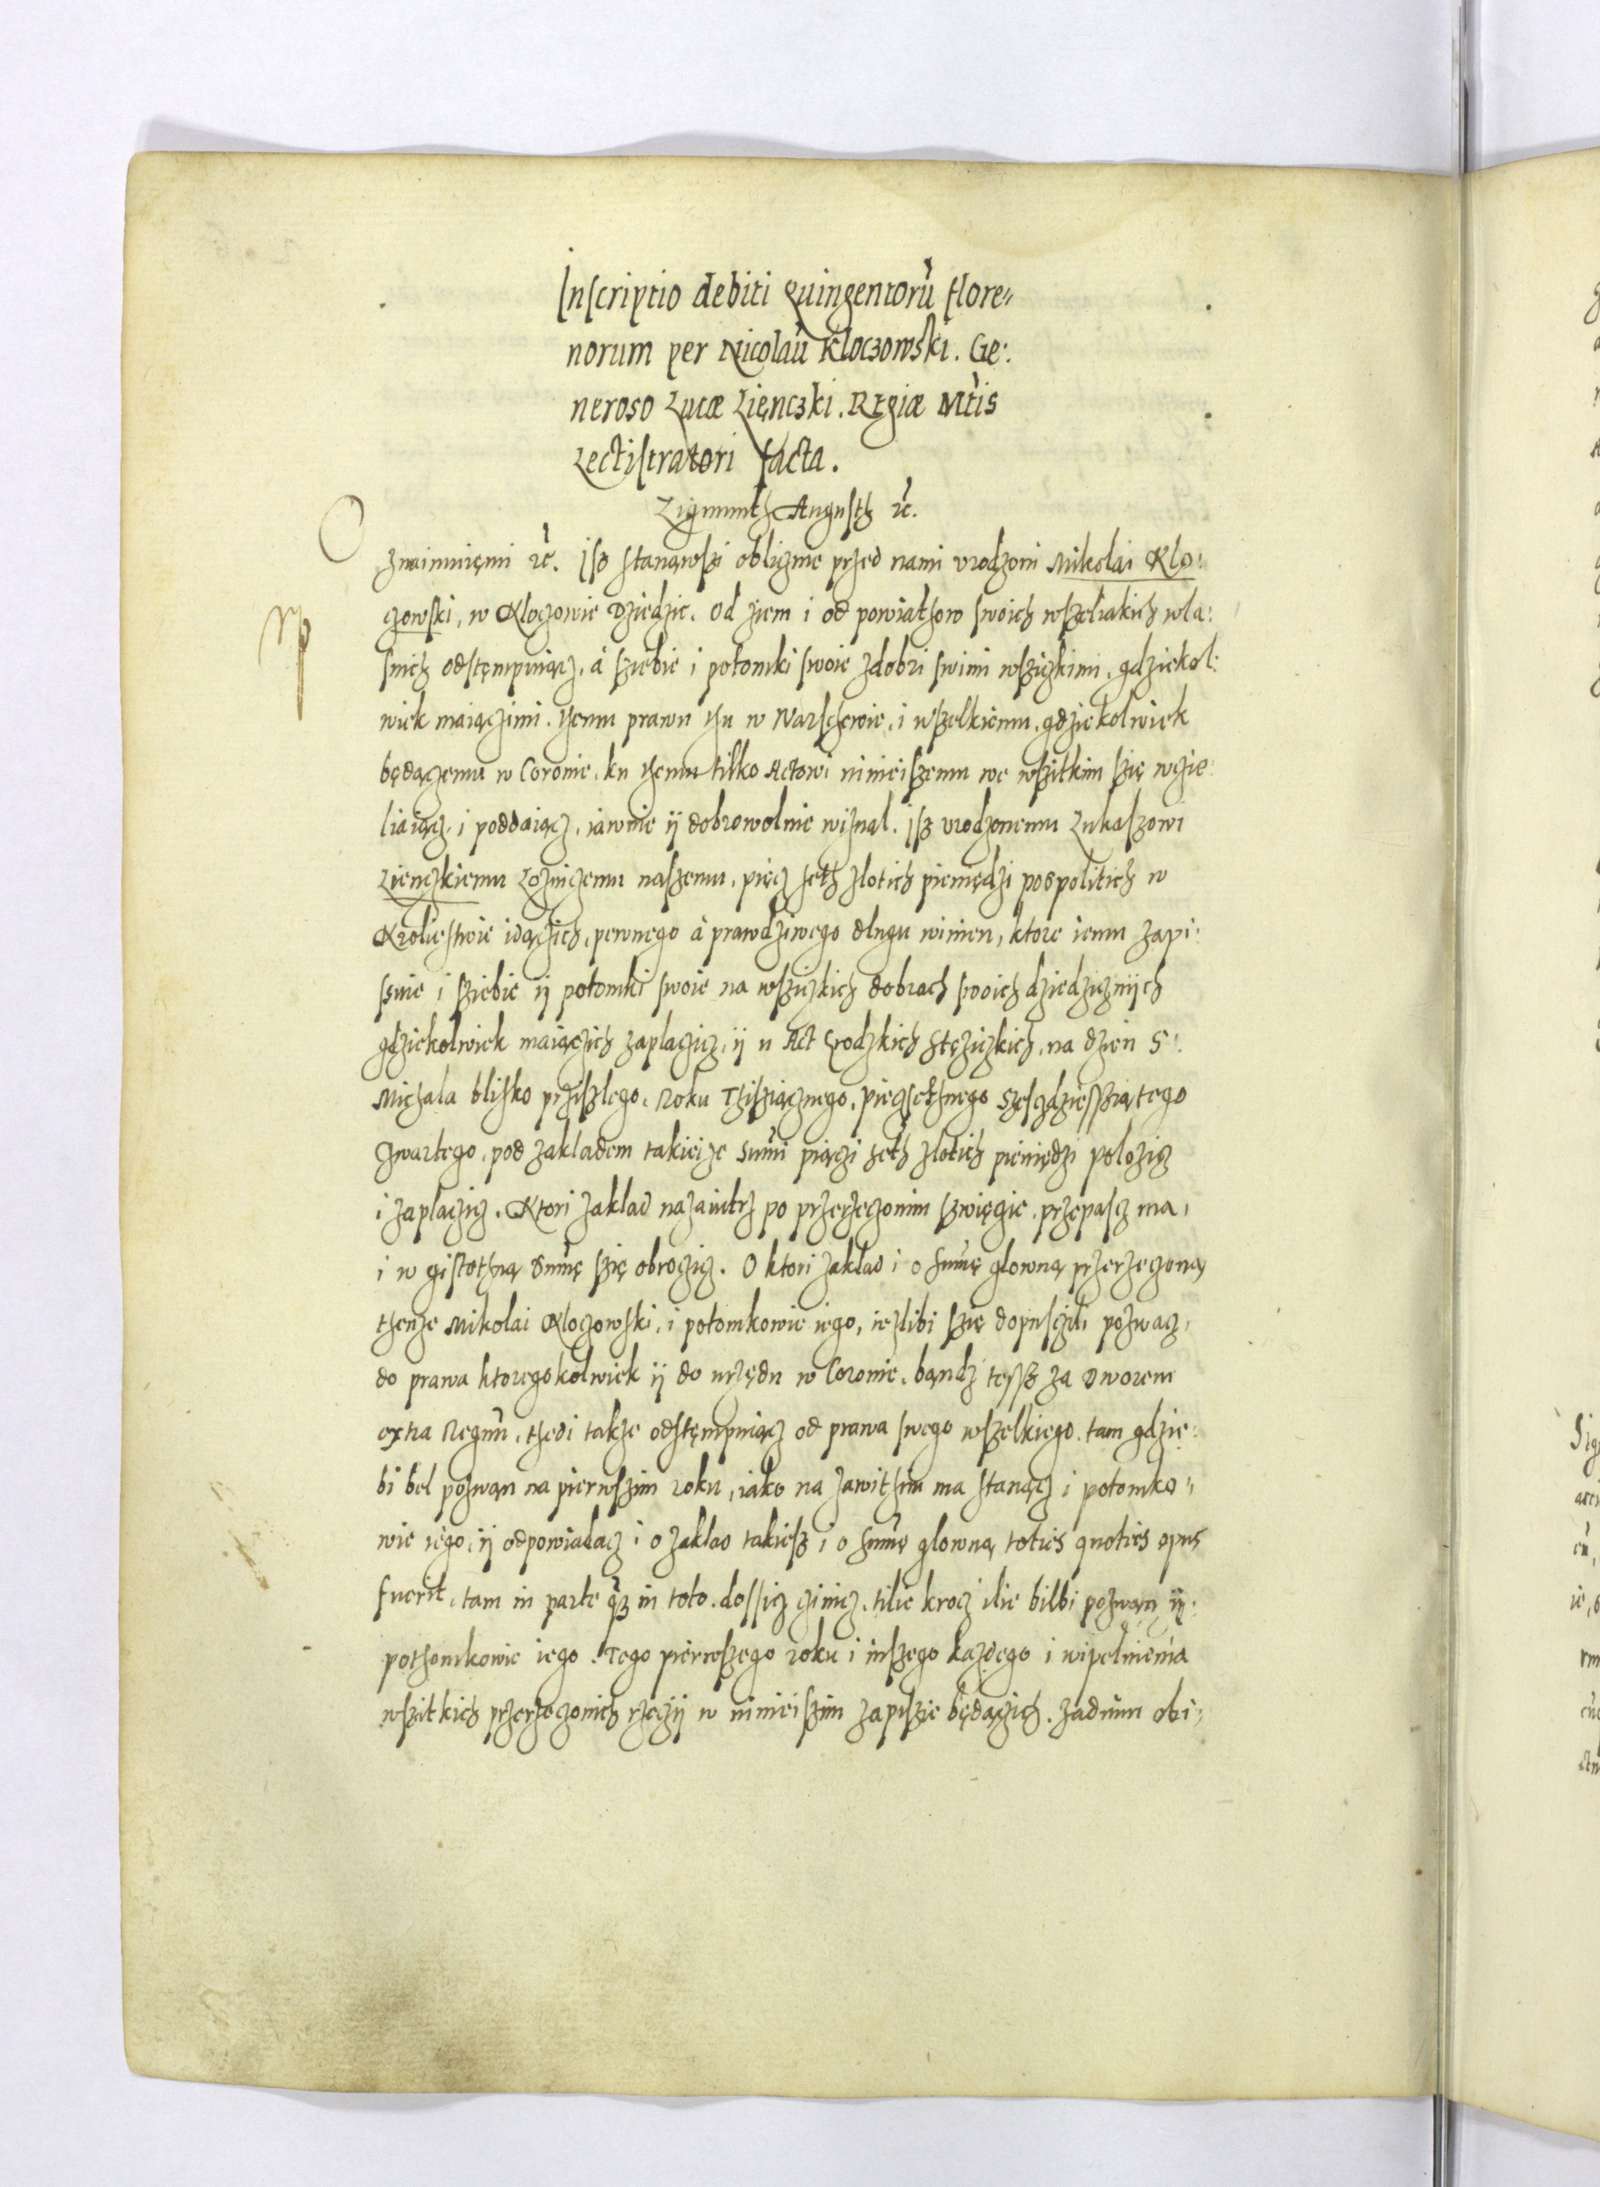 Inscriptio debiti quingentorũ flore„
norum per Nicolaũ Kloczowski. Ge:
neroso Lucæ Lięnczki. Regiæ Mtis
Lectistratori facta.
Zigmunth Augusth ꝛc.
Znaimuięmi ꝛc. Jsz stanąwszi oblicznie przed nami urodzoni Mikolai Klo:
czowski, w Kloczowie Dziedzic. Od ziem i od powiathow swoich wszeliakich wla:
snich odstęmpuiącz, á sziebie i potomki swoie z dobri swimi wsziczkimi, gdziekol:
wiek maiączimi. themu prawu thu w Warschewie, i wszelkiemu, gdziekolwiek
będączemu w Coronie, ku themu tilko Actowi ninieiszemu we wszitkim szię wczie:
liaiącz, i poddaiącz, iawnie ij dobrowolnie wiznal. jsz urodzonemu Lukaszowi
Lienczkiemu Lozniczemu naszemu, pięcz seth zlotich pieniędzi pospolitich w
Krolięstwie idączich, pewnego á prawdziwego dlugu winien, ktore iemu zapi:
ssuie i sziebie ij potomki swoie na wsziczkich dobrach swoich dziedzicznijch
gdziekolwiek maiączich zaplaczicz, ij u Act Grodzkich Stęziczkich, na dzien S:
Michala blisko prziszlego, Roku Thisziącznego, pięczsethnego Szesczdziessziątego
Czwartego, pod zakladem takieize Sumi piączi seth zlotich pieniędzi polozicz
i zaplaczicz. Ktori zaklad nazaiutrz po przerzeczonim szwięcie, przepascz ma,
i w gistothną Sumę szię obroczicz. O ktori zaklad i o sumę glowną przerzeczoną
thenze Mikolai Kloczowski, i potomkowie iego, iezlibi szię dopuscili pozwacz,
do prawa ktoregokolwiek ij do urzędu w Coronie, bąndz tessz za Dworem
extra Regnũ, thedi takze odstęmpuiącz od prawa swego wszelkiego, tam gdzie:
bi bel pozwąn na pierwszim roku, iako na zawithim ma stanącz i potomko„
wie iego, ij odpowiadacz i o zaklad takiesz i o sumę glowną toties quoties opus
fuerit, tam in parte qz in toto, dossicz czinicz, tilie krocz ilie bilbi pozwąn ij:
pothomkowie iego. Tego pierwszego roku i inszego kazdego i wipelnienia
wszitkich przerzeczonich rzeczij w ninieiszim zapiszie będączich. Zadnim obi„